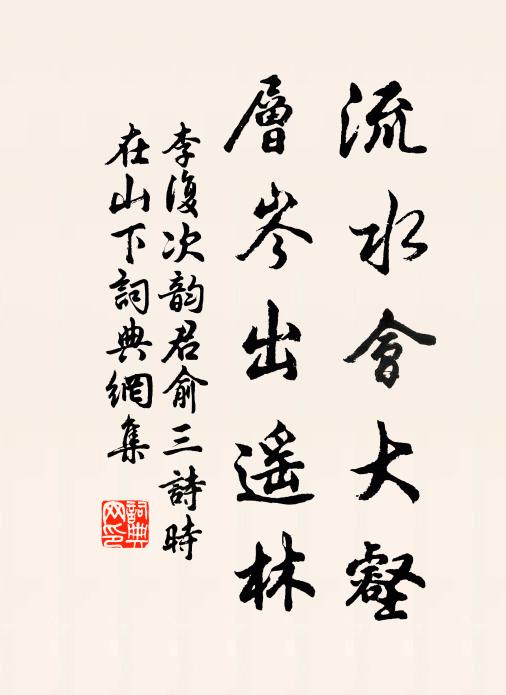 流水會大壑
層岑出遥林
李復次韵君俞三詩時
在山下詞典網集
詞典網印